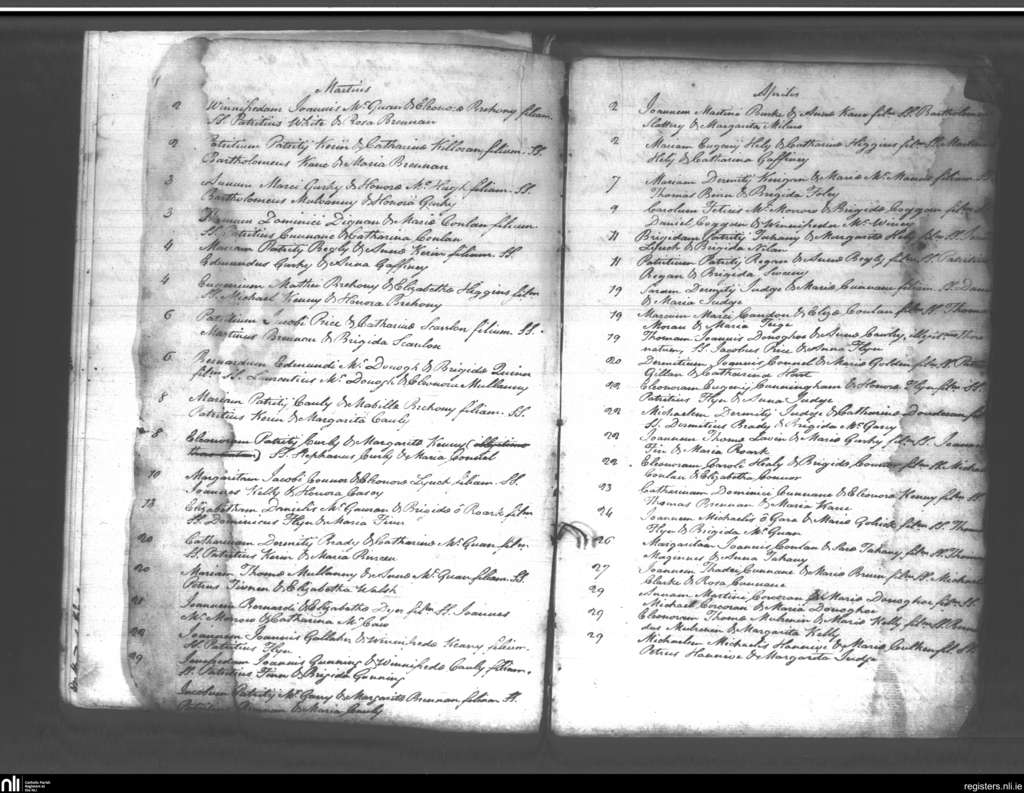 Martius
2 Winnifredam Joannis McGuan & Elenoræ Brehony filiam.
St. Patritius White & Rosa Brennan
2 Patritium Patritij Kerin & Catharinæ Killoran filium. SS.
Bartholomeus Kane & Maria Brennan
3 Annam Marci Gurhy & Honoræ McHugh filiam. SS.
Bartholomeus Mulvanny & Honora Gurhy
3 Thomam Dominici Dignan & Mariæ Conlan filium.
St. Patritius Cunnane & Catharina Conlan
4 Mariam Patritij Begly & Annæ Kerin filiam. SS.
Edmundus Gurhy & Anna Gaffiney
4 Eugenium Mathei Brehony & Elizabethæ Higgins film
St. Michael Kenny & Honora Brehony
6 Patritium Jacobi Price & Catharinæ Scanlon filium. SS.
Martinus Brennan & Brigida Scanlon
6 Bernardum Edmundi McDonogh & Brigidæ
film St. Laurentius McDonogh & Elenora Mullanny
8 Mariam Patritij Cauly & Mabilla Brehony filiam. SS.
Patritius Kerin & Margarita Cauly
8 Elenoram Patritij Curly & Margaritæ Kenny
St. Stephanus Curly & Maria
10 Margaritam Jacobi Connor & Elenoræ Lynch filiam. SS.
Joannes Kelly & Honora Casey
13 Elizabetham Danielis McGauran & Brigidæ ó Roark film
St. Dominicus Flyn & Maria Finn
20 Catharinam Dermitij Brady & Catharinæ McGuan film.
St. Patritius Kerin & Maria
20 Mariam Thomæ Mullanny & Annæ McGuan filiam. SS.
Petrus & Elizabetha Walsh
Joannem Bernardi & Elizabethæ Dyer film St. Joannes
McMorow & Catharina McCue
Joannem Joannis Gallaher & Winnifredæ Keany filium.
St. Patritius Flyn
29 Joannis Gunning & Winnifredæ Cauly filium.
St. Patritius Finn & Brigida Gunning
Jacobum Patritij McGarry & Margaritæ Brennan filium St.
Brennan & Maria Cauly
Aprilis
2 Joannem Martini Burke & Annæ Kane film St. Bartholomeus
Slattery & Margarita Milmo
2 Mariam Eugenij Hely & Catharinæ Higgins film St. Martinus
Hely & Catharina Gaffiney
7 Mariam Dermitij & Mariæ McManus filiam
Thomas Beirn & Brigida Foley
9 Carolum McMorow & Brigidæ Coggan film
Daniel Coggan & Winnifreda
11 Brigidam Patritij Tahany & Margaritæ Hely film St.
Lynch & Brigida
11 Patritium Patritij Regan & Annæ Begly film St. Patritius
Regan & Brigida Sweeny
19 Saram Dermitij Judge & Mariæ Cunnane filiam. St.
& Maria Judge
19 Marcum Marci Candon & Conlan film St. Thomas
Moran & Maria
19 Thomam Joannis Donoghoe & Annæ Cawley,
natum, St. Jacobus Price & Anna Flyn
20 Dermitium Joannis Connel & Mariæ Golden film St.
Gillan & Catharina Hart
22 Elenoram Eugenij Cunningham & Honoræ Flyn film St.
Patritius Flyn & Anna Judge
22 Michaelem Dermitij Judge & Catharinæ
St. Dermitius Brady & Brigida McGary
22 Joannem Thomæ Lavin & Mariæ Gurhy film St. Joannes
& Maria Roark
22 Elenoram Caroli Healy & Brigidæ Connor film St. Michael
Conlan & Elizabetha Connor
23 Catharinam Dominici Cunnane & Elenoræ Kenny film St.
Thomas Brennan & Maria Kane
24 Joannem Michaelis ó Gara & Mariæ film St. Thomas
Flyn & Brigida McGuan
26 Margaritam Joannis Conlan & Saræ Tahany film St. Thomas
& Anna Tahany
27 Joannem Thadei Cunnane & Mariæ film St. Michael
Clarke & Rosa Cunnane
29 Annam Martini Corcoran & Mariæ Donoghoe film St.
Michael Corcoran & Maria Donoghoe
29 Elenoram Thomæ & Mariæ Kelly film St.
& Margarita Kelly
29 Michaelem Michaelis & Mariæ film St.
Petrus & Margarita Judge
nli
Catholic Parish
Registers at
the NLI
registers.nli.ie